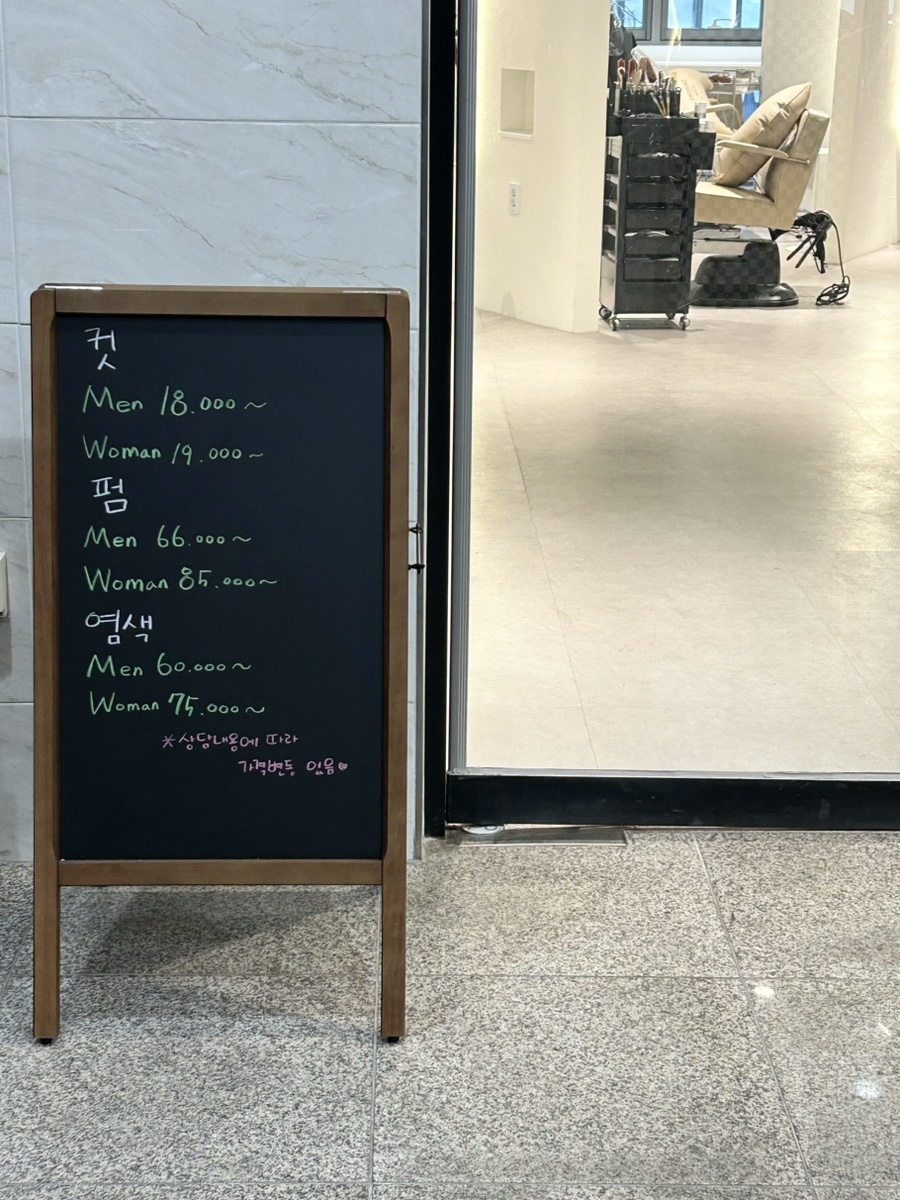 컷
Men 18.000~
Woman 19.000~
펌
Men 66.000~
Woman 85.000~
염색
Men 60.000~
Woman 75.000~
*상담내용에 따라
가격변동 있음♥